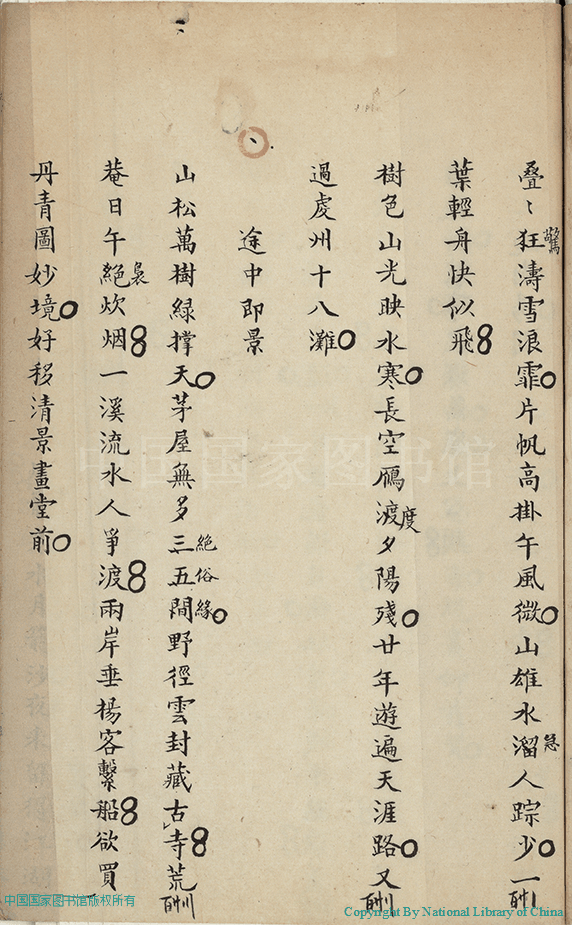 叠〻狂濤雪浪霏片帆高掛午風微山雄水溜人踪少一
驚
急
葉輕舟快似飛
樹色山光映水寒長空鴈渡夕陽殘廿年遊遍天涯路又
度
過處州十八灘
途中即景
山松萬樹綠撑天茅屋無多三五間野徑雲封藏古寺荒
絕俗緣
菴日午絕炊烟一溪流水人爭渡兩岸垂楊客繫船欲買
裊
丹青圖妙境好移清景畫堂前
中国国家图书馆
中国国家图书馆版权所有
Copyright By National Library of China